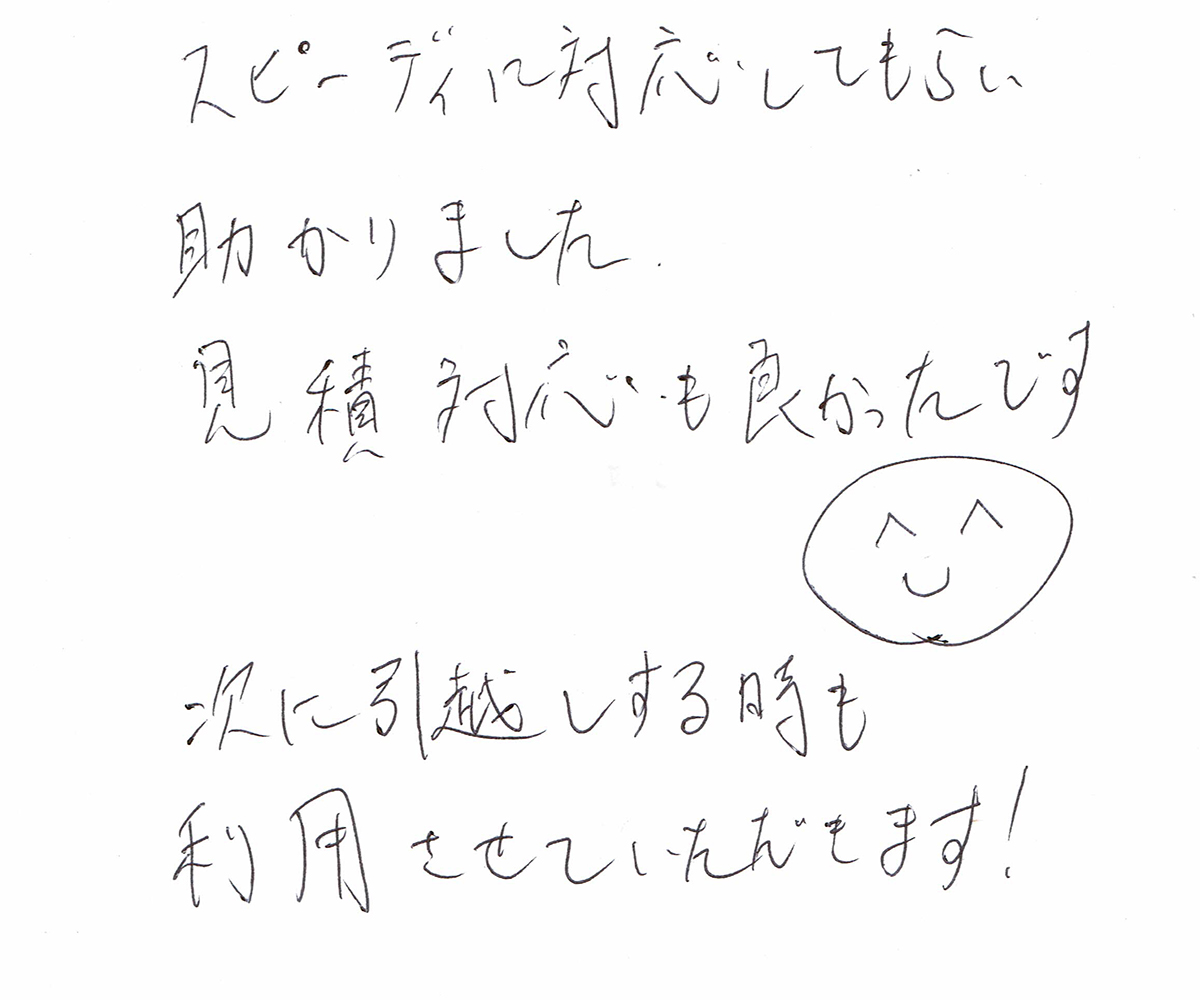 スピーディに対応してもらい
助かりました.
見積対応も良かったです
次に引越しする時も
利用させていただきます!